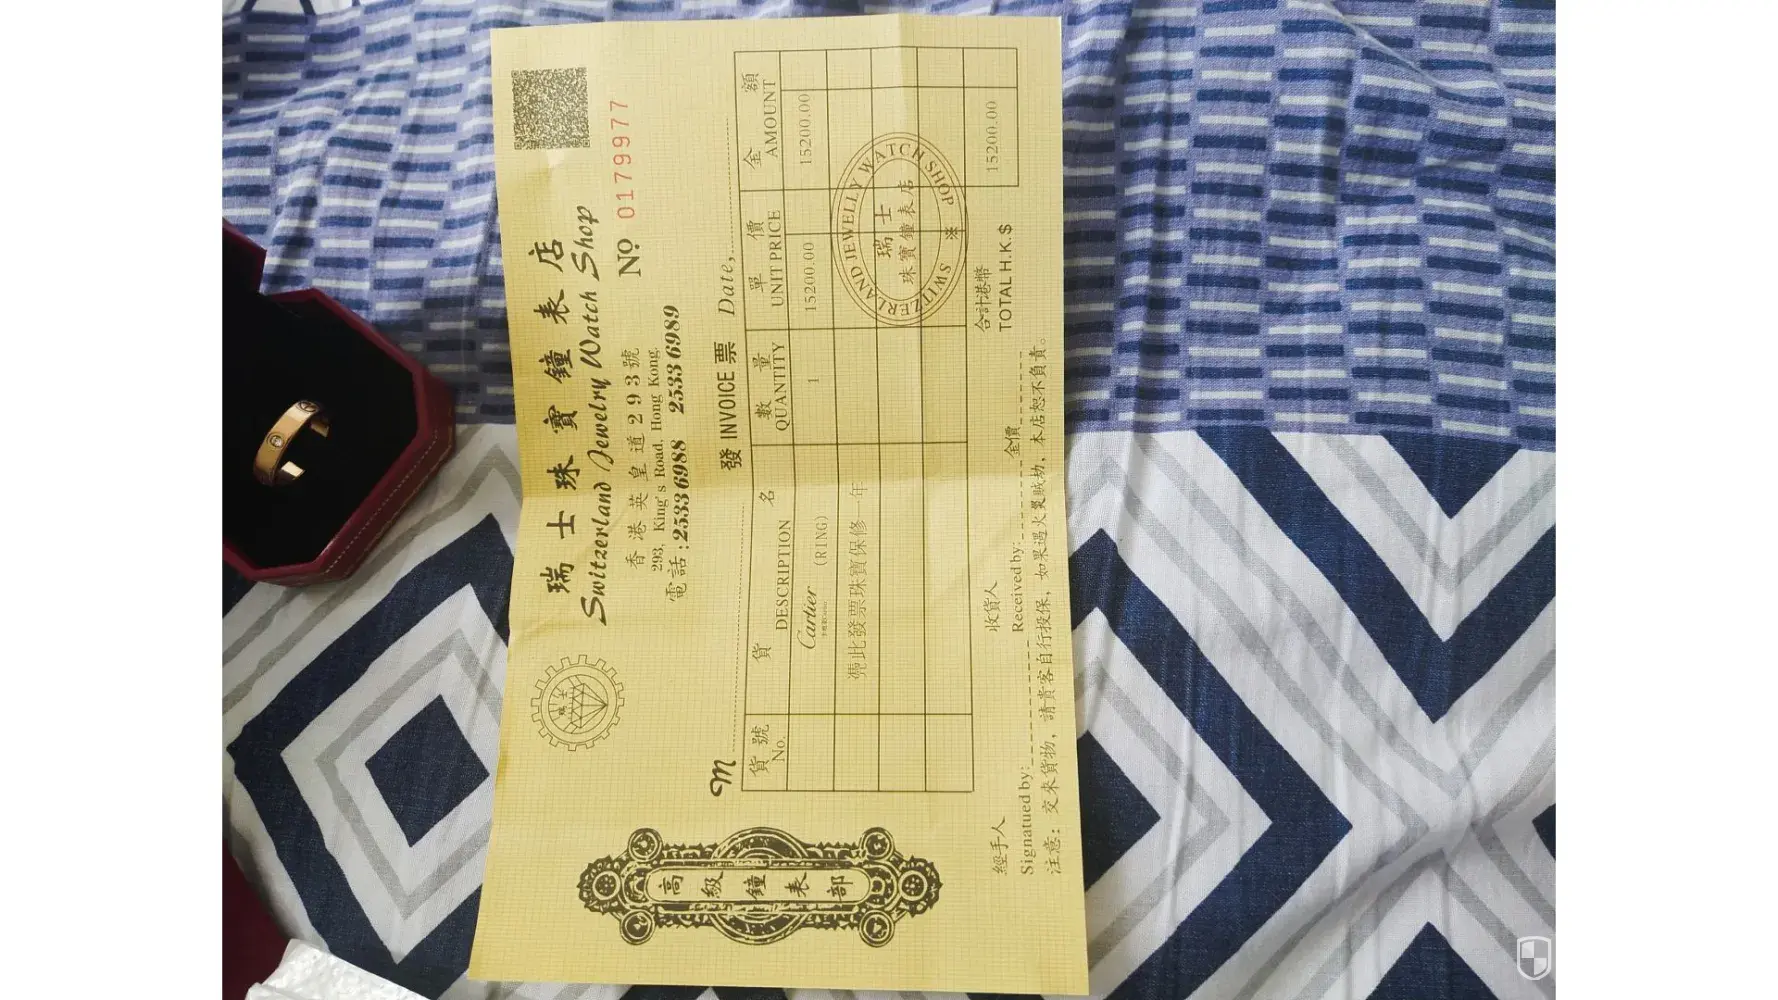 瑞士珠寶鐘表店
Switzerland Jewelry Watch Shop
香港英皇道293號
293, King's Road, Hong Kong.
電話:25336988 25336989
Nº 0179977
發 INVOICE 票
Date,
M
貨號 貨名 數量 單價 金額
No. DESCRIPTION QUANTITY UNIT PRICE AMOUNT
Cartier (RING) 1 15200.00 15200.00
憑此發票珠寶保修一年
SWITZERLAND JEWELLY WATCH SHOP ※
瑞士
珠寶鐘表店
合計港幣
TOTAL H.K.$ 15200.00
經手人 收貨人 金價
Signatued by: Received by:
注意: 交來貨物, 請貴客自行投保, 如果遇火災賊劫, 本店恕不負責。
高級鐘表部